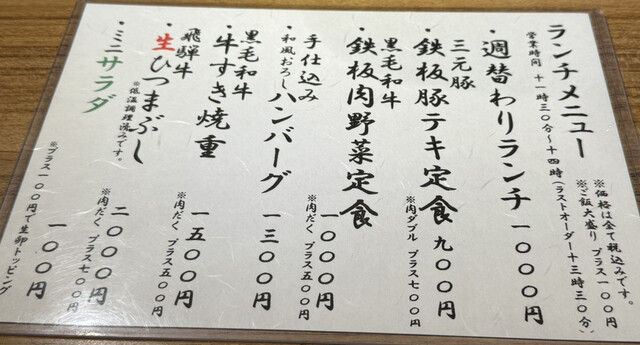 ランチメニュー
営業時間 十一時三〇分～十四時(ラストオーダー十三時三〇分)
※価格は全て税込みです。
※ご飯大盛り プラス一〇〇円
・週替わりランチ 一〇〇〇円
・三元豚
鉄板豚テキ定食 九〇〇円
※肉ダブル プラス七〇〇円
・黒毛和牛
鉄板肉野菜定食 一〇〇〇円
※肉だく プラス五〇〇円
・手仕込み
和風おろしハンバーグ 一三〇〇円
・黒毛和牛
牛すき焼重 一五〇〇円
※肉だく プラス五〇〇円
・飛騨牛
生ひつまぶし 二〇〇〇円
※低温調理済みです。
※肉だく プラス七〇〇円
・ミニサラダ 一〇〇円
※プラス一〇〇円で生卵トッピング